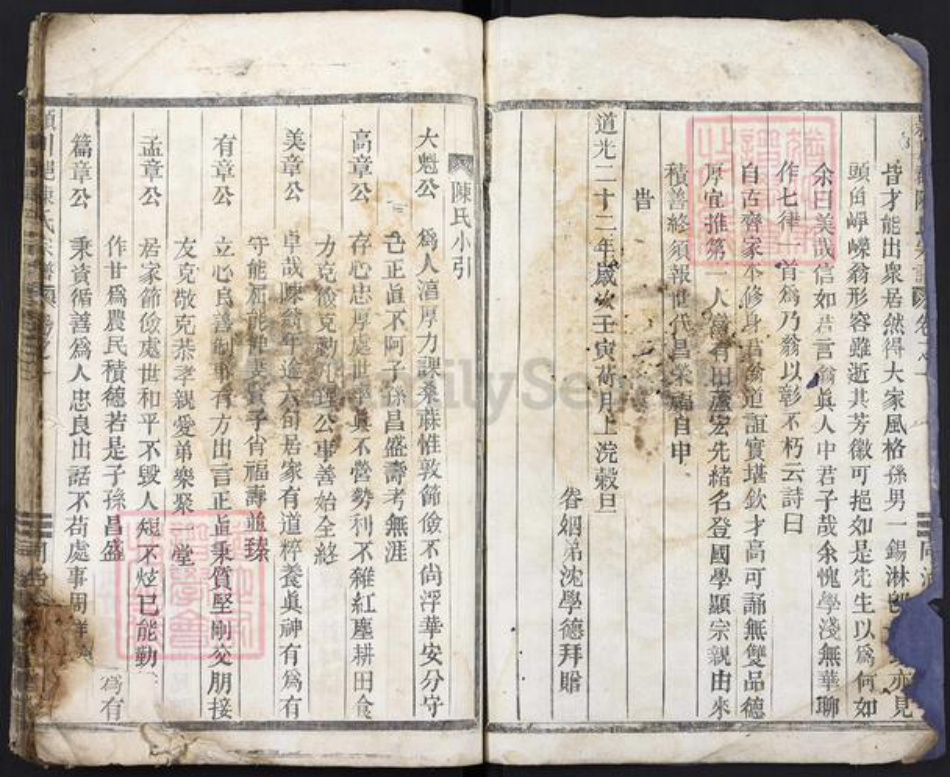 皆才能出衆居然得大家風格孫男一錫淋
亦見
頭角崢嶸翁形容雖逝其芳徽可挹如是先生以爲何如
余曰美哉信如君言翁眞人中君子哉余愧學淺無華聊
作七律一首爲乃翁以彰不朽云詩曰
自古齊家本修身君翁道誼實堪欽才高可誦無雙品德
厚宜推第一人舊有田廬宏先緒名登國學顯宗親由來
積善終須報世代昌榮福自申
旹
道光二十二年歲次壬寅荷月上浣穀旦
眷姻弟沈學德拜贈
陳氏小引
大魁公 爲人渲厚力課桑蔴惟敦節儉不尙浮華安分守
己正直不阿子孫昌盛壽考無涯
高章公 存心忠厚處世 眞不營勢利不雜紅塵耕田食
力克儉克勤凡理公事善始全終
美章公 卓哉陳翁年逾六旬居家有道粹養眞神有爲有
守能屈能伸妻賢子肖福壽並臻
有章公 立心良善制事有方出言正直秉質堅剛交朋接
友克敬克恭孝親愛弟樂聚 堂
孟章公 居家節儉處世和平不毀人短不炫己能勤
爲有
作甘爲農民積德若是子孫昌盛
篇章公 秉資循善爲人忠良出話不苟處事周詳
陳氏宗譜
FamilySearch